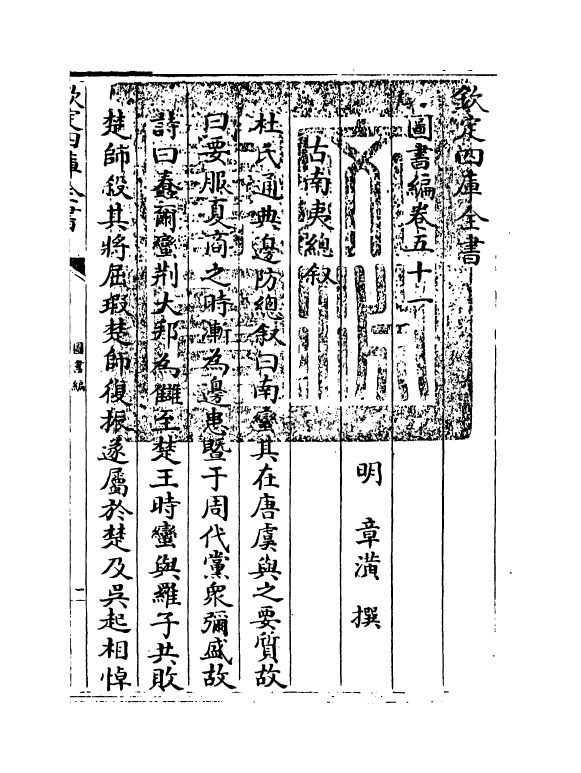 欽定四庫全書
圖書編卷五十一
明 章潢 撰
古南夷總叙
杜氏通典邊防總叙曰南蠻其在唐虞與之要質故
曰要服夏商之時漸為邊患暨于周代黨衆彌盛故
詩曰蠢爾蠻荆大邦為讎至楚王時蠻與羅子共敗
楚師殺其將屈瑕楚師復振遂屬於楚及吳起相悼
欽定四庫全書
圖書編
二